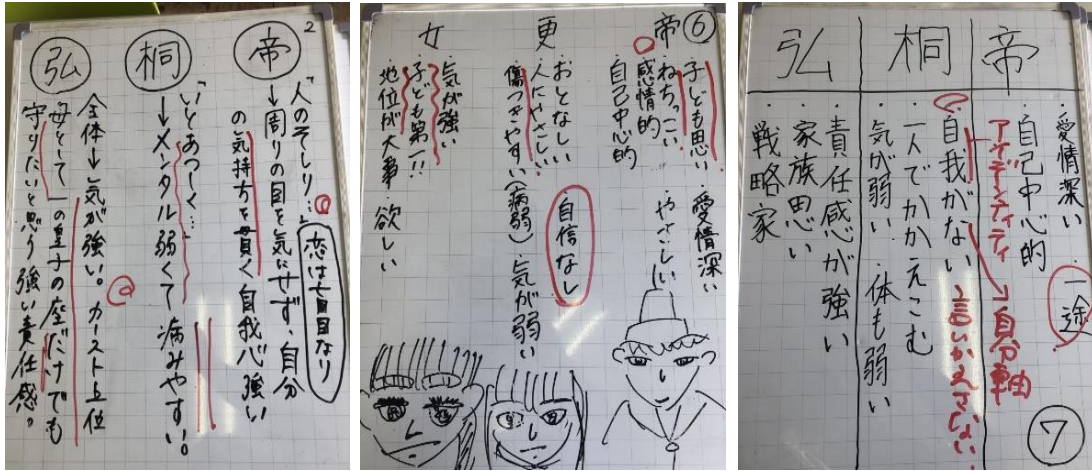 2
帝
「人のそしり…」
→周りの目を気にせず、自分
の気持ちを貫く自我が強い
恋は盲目なり
桐
「いとあつしく…」
→メンタル弱くて病みやすい。
弘
全体→気が強い。カースト上位
母として一の皇子の座だけでも
守りたいと思う強い責任感。
⑥
帝
子ども思い 愛情深い
ねちっこい やさしい
感情的
自己中心的
更
おとなしい 自信なし
人にやさしい
傷つきやすい(病弱) 気が弱い
女
気が強い
子ども第一!!
地位が大事 欲しい
帝
愛情深い 一途
自己中心的
アイデンティティ
自分軸
桐
自我がない 言いかえさない
一人でかかえこむ
気が弱い ・体も弱い
弘
責任感が強い
家族思い
戦略家
⑦